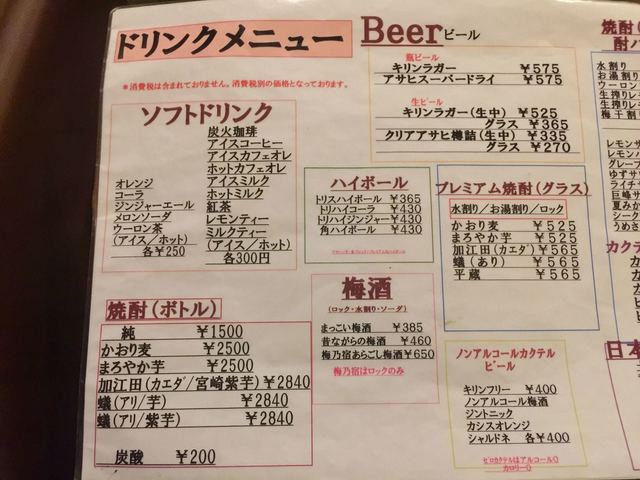 ドリンクメニュー
＊消費税は含まれておりません。消費税別の価格となっております。
ソフトドリンク
オレンジ
コーラ
ジンジャーエール
メロンソーダ
ウーロン茶
(アイス／ホット)
各￥250
炭火珈琲
アイスコーヒー
アイスカフェオレ
ホットカフェオレ
アイスミルク
ホットミルク
紅茶
レモンティー
ミルクティー
(アイス／ホット)
各300円
焼酎(ボトル)
純 ￥1500
かおり麦 ￥2500
まろやか芋 ￥2500
加江田(カエダ/宮崎紫芋) ￥2840
蟻(アリ/芋) ￥2840
蟻(アリ/紫芋) ￥2840
炭酸 ￥200
Beerビール
瓶ビール
キリンラガー ￥575
アサヒスーパードライ ￥575
生ビール
キリンラガー(生中) ￥525
グラス ￥365
クリアアサヒ樽詰(生中) ￥335
グラス ￥270
ハイボール
トリスハイボール ￥365
トリハイコーラ ￥430
トリハイジンジャー ￥430
角ハイボール ￥430
梅酒
(ロック・水割り・ソーダ)
まっこい梅酒 ￥385
昔ながらの梅酒 ￥460
梅乃宿あらごし梅酒 ￥650
梅乃宿はロックのみ
プレミアム焼酎(グラス)
水割り／お湯割り／ロック
かおり麦 ￥525
まろやか芋 ￥525
加江田(カエダ) ￥565
蟻(あり) ￥565
平蔵 ￥565
ノンアルコールカクテル
ビール
キリンフリー ￥400
ノンアルコール梅酒
ジントニック
カシスオレンジ
シャルドネ 各￥400
ゼロカクテルはアルコール０
カロリー０
焼酎(
酎ハ
水割り
お湯割り
ウーロン
生搾りレ
生搾りレ
梅干割
レモンサ
レモン
グレープ
ゆずサ
ライチ
巨峰サ
夏みか
シーク
うめさ
カクテ
日本